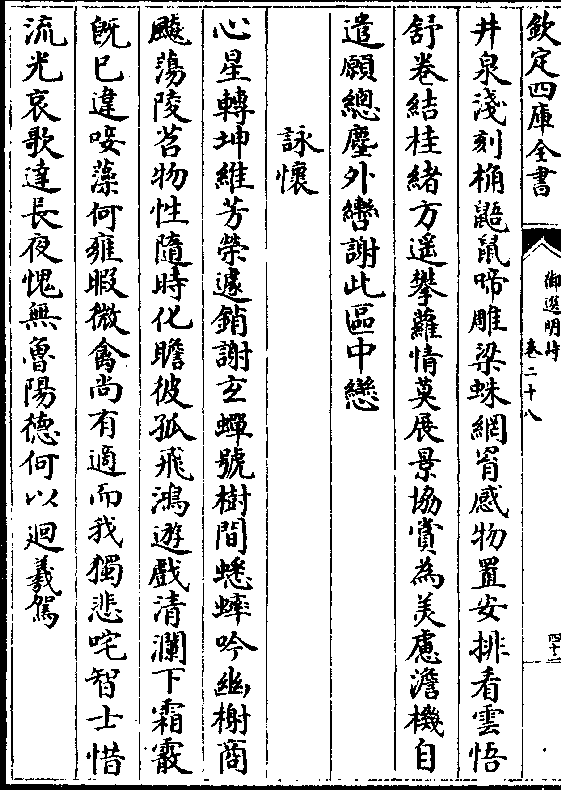 欽定四庫全書
御選明詩
卷二十八
四十二
井泉淺刻桷鼯鼠啼雕梁蛛網罥感物置安排看雲悟
舒卷結桂緒方遥攀蘿情莫展景協賞為美慮澹機自
遣願總塵外轡謝此區中戀
詠懷
心星轉坤維芳榮遽銷謝玄蟬號樹間蟋蟀吟幽榭商
飈蕩陵苕物性隨時化瞻彼孤飛鴻遊戲清瀾下霜霰
旣已違唼藻何雍暇微禽尚有適而我獨悲咤智士惜
流光哀歌達長夜愧無魯陽德何以迴羲駕